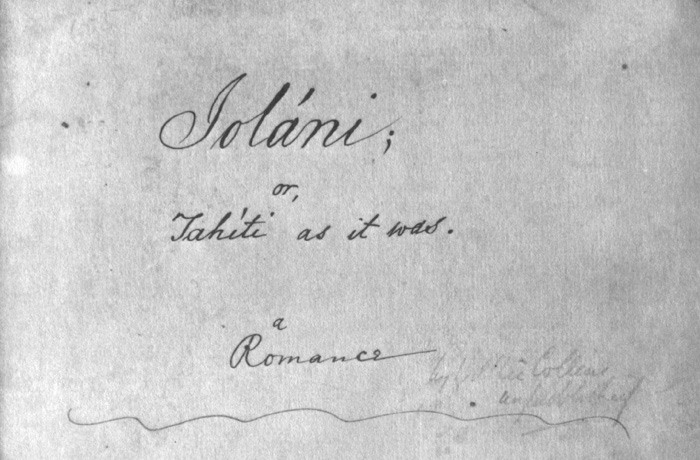 Ioláni;
or,
Tahíti as it was.
a
Romance
by Wilkie Collins
unpublished